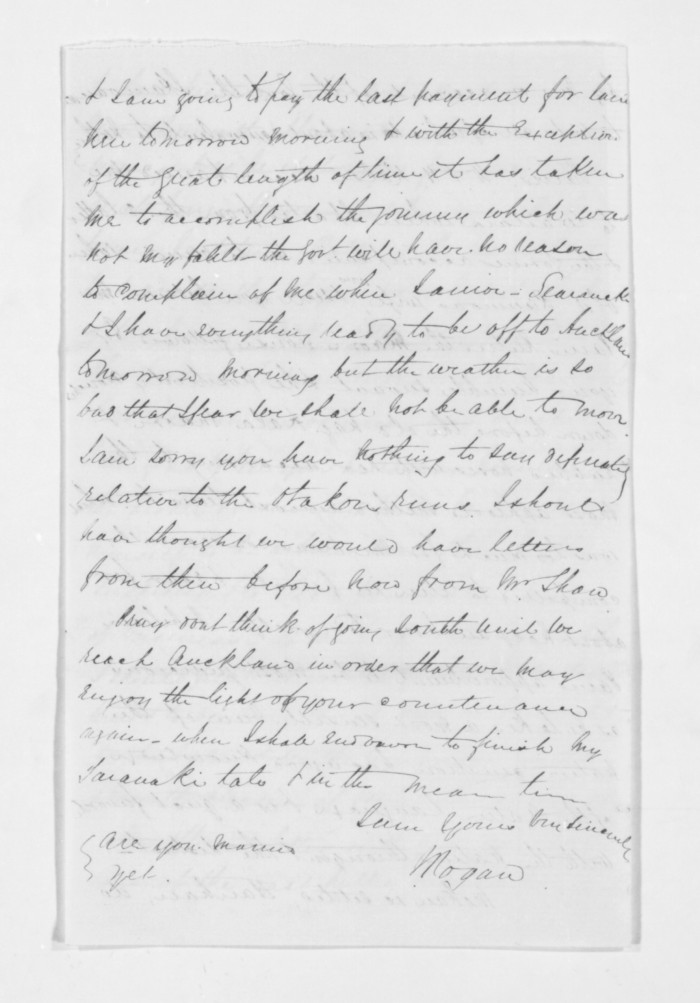 & I am going to pay the last payment for land
here tomorrow morning & with the exception
of the great length of time it has taken
me to accomplish the journey which was
not my fault the Govt. will have no reason
to complain of me when I arrive - Searancke
& I have everything ready to be off to Auckland
tomorrow morning but the weather is so
bad that I fear we shall not be able to move.
I am sorry you have nothing to say definitely
relative to the Otakou runs. I should
have thought we would have letters
from there before now from Mr. Shaw
Pray dont think of going South until we
reach Auckland in order that we may
enjoy the light of your countenance
again - when I shall endeavour to finish my
Taranaki tale & in the mean time
I am Yours very sincerely
Rogan
are you married
yet.